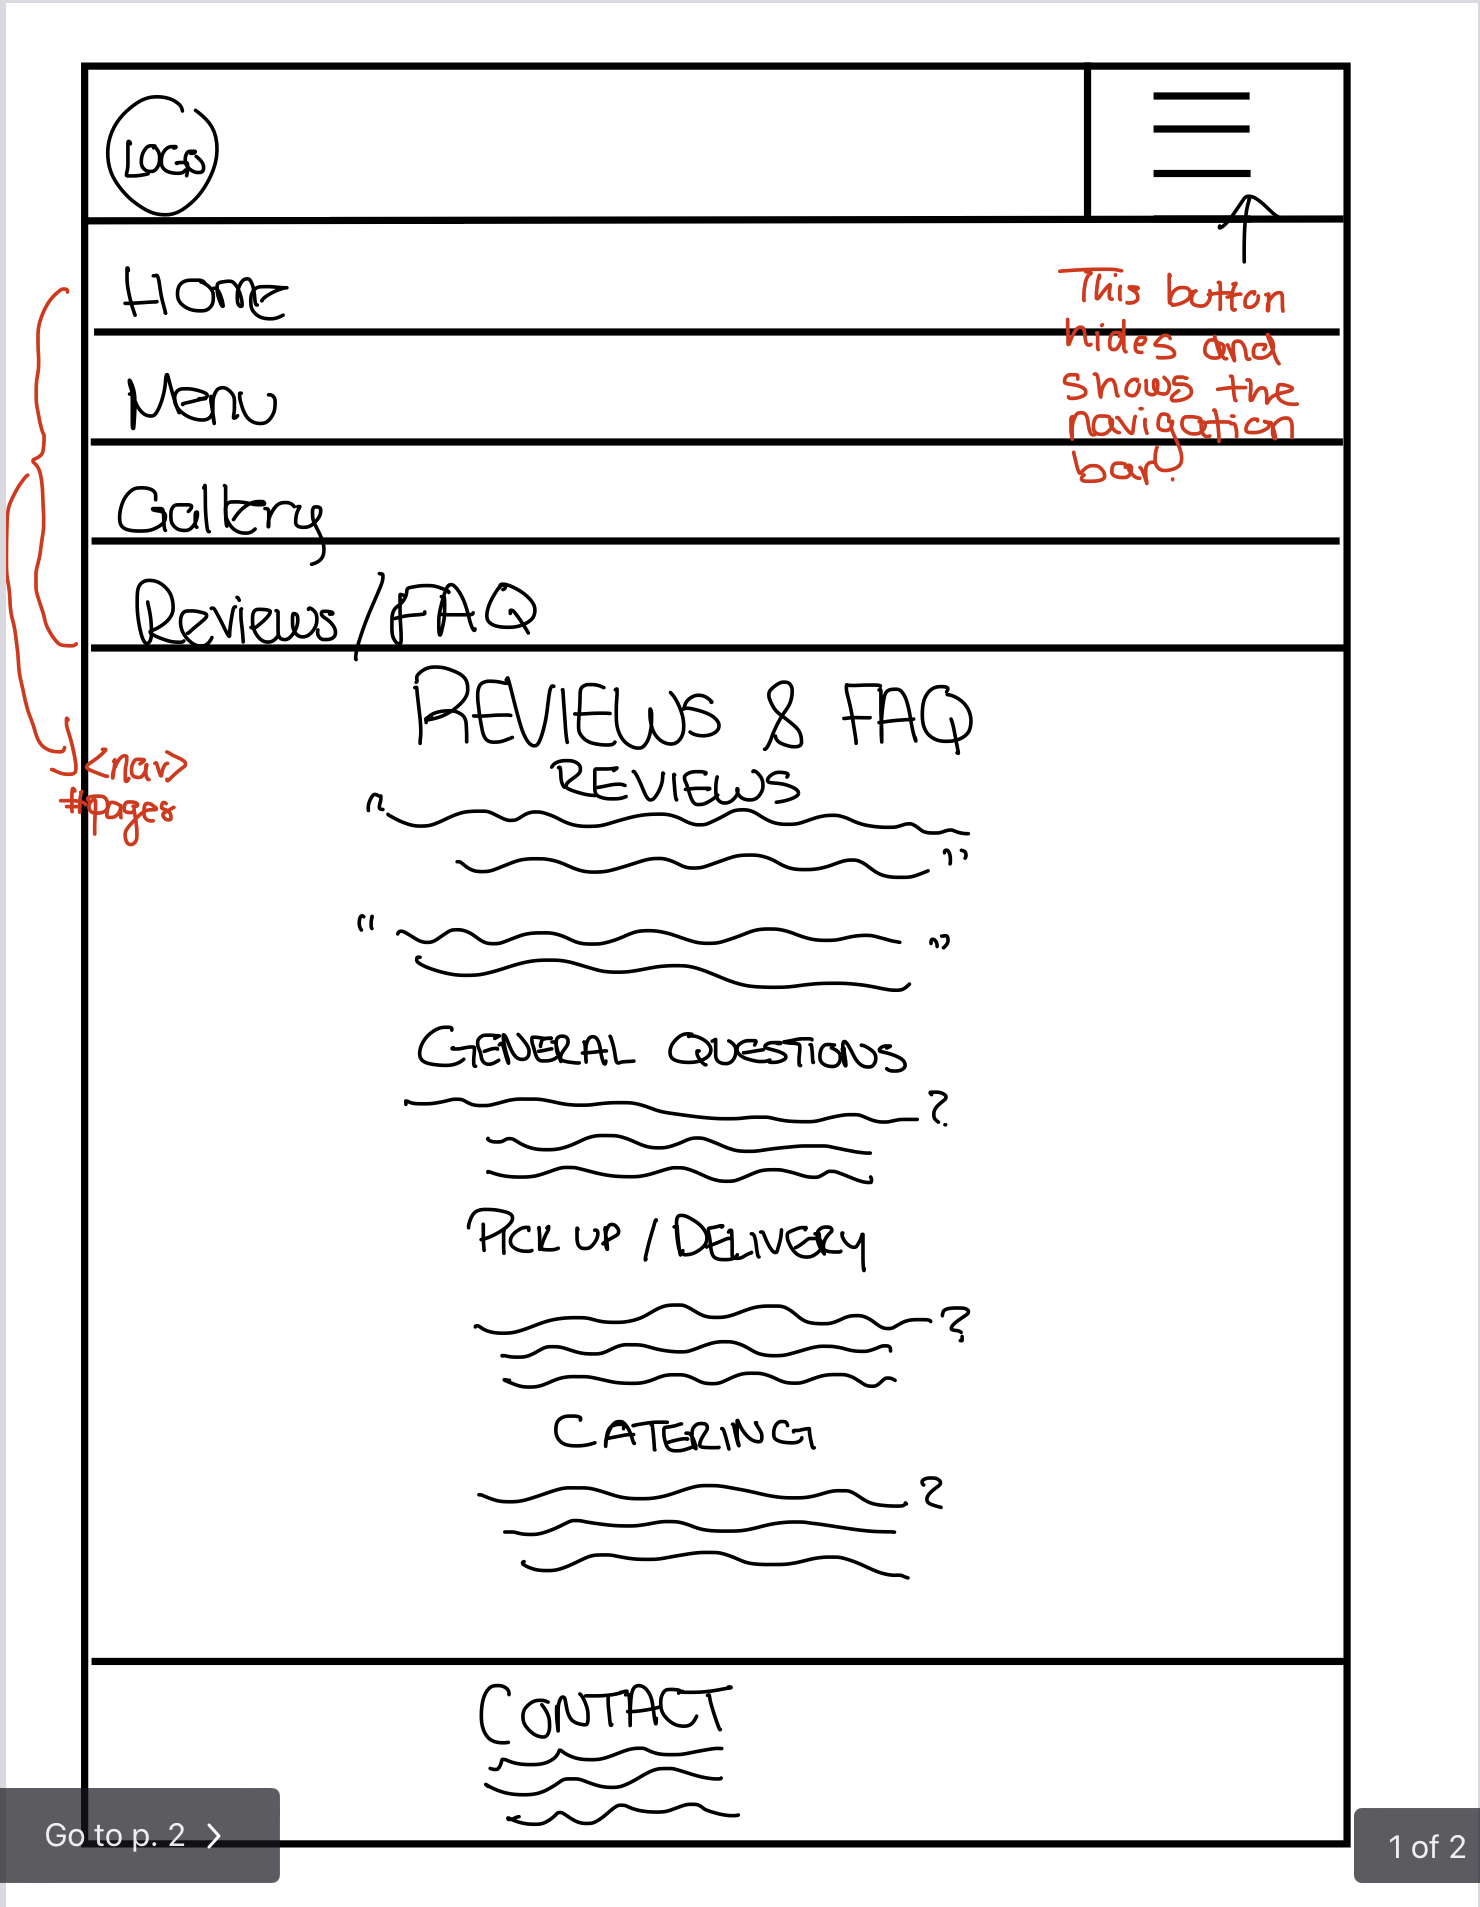 LOGO
Home
This button
hides and
shows the
navigation
bar.
Menu
Gallery
Reviews/FAQ
REVIEWS & FAQ
<nav>
#pages
REVIEWS
"
"
" "
GENERAL QUESTIONS
?
PICK UP / DELIVERY
?
CATERING
?
CONTACT
Go to p. 2 >
1 of 2